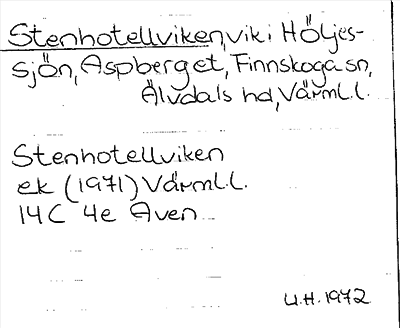 Stenhotellviken, vik i Höljes-
sjön, Aspberget, Finnskoga sn,
Älvdals hd, Värml.l.
Stenhotellviken
ek (1971) Värml.l.
14C 4e Aven
U.H. 1972